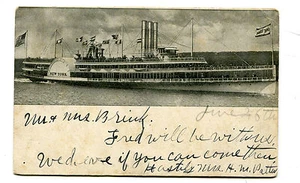 NEW YORK
June 26th
Mr & Mrs. Brink.
Fred will be with us.
We dine if you can come then
Hastily Mrs. H. M.